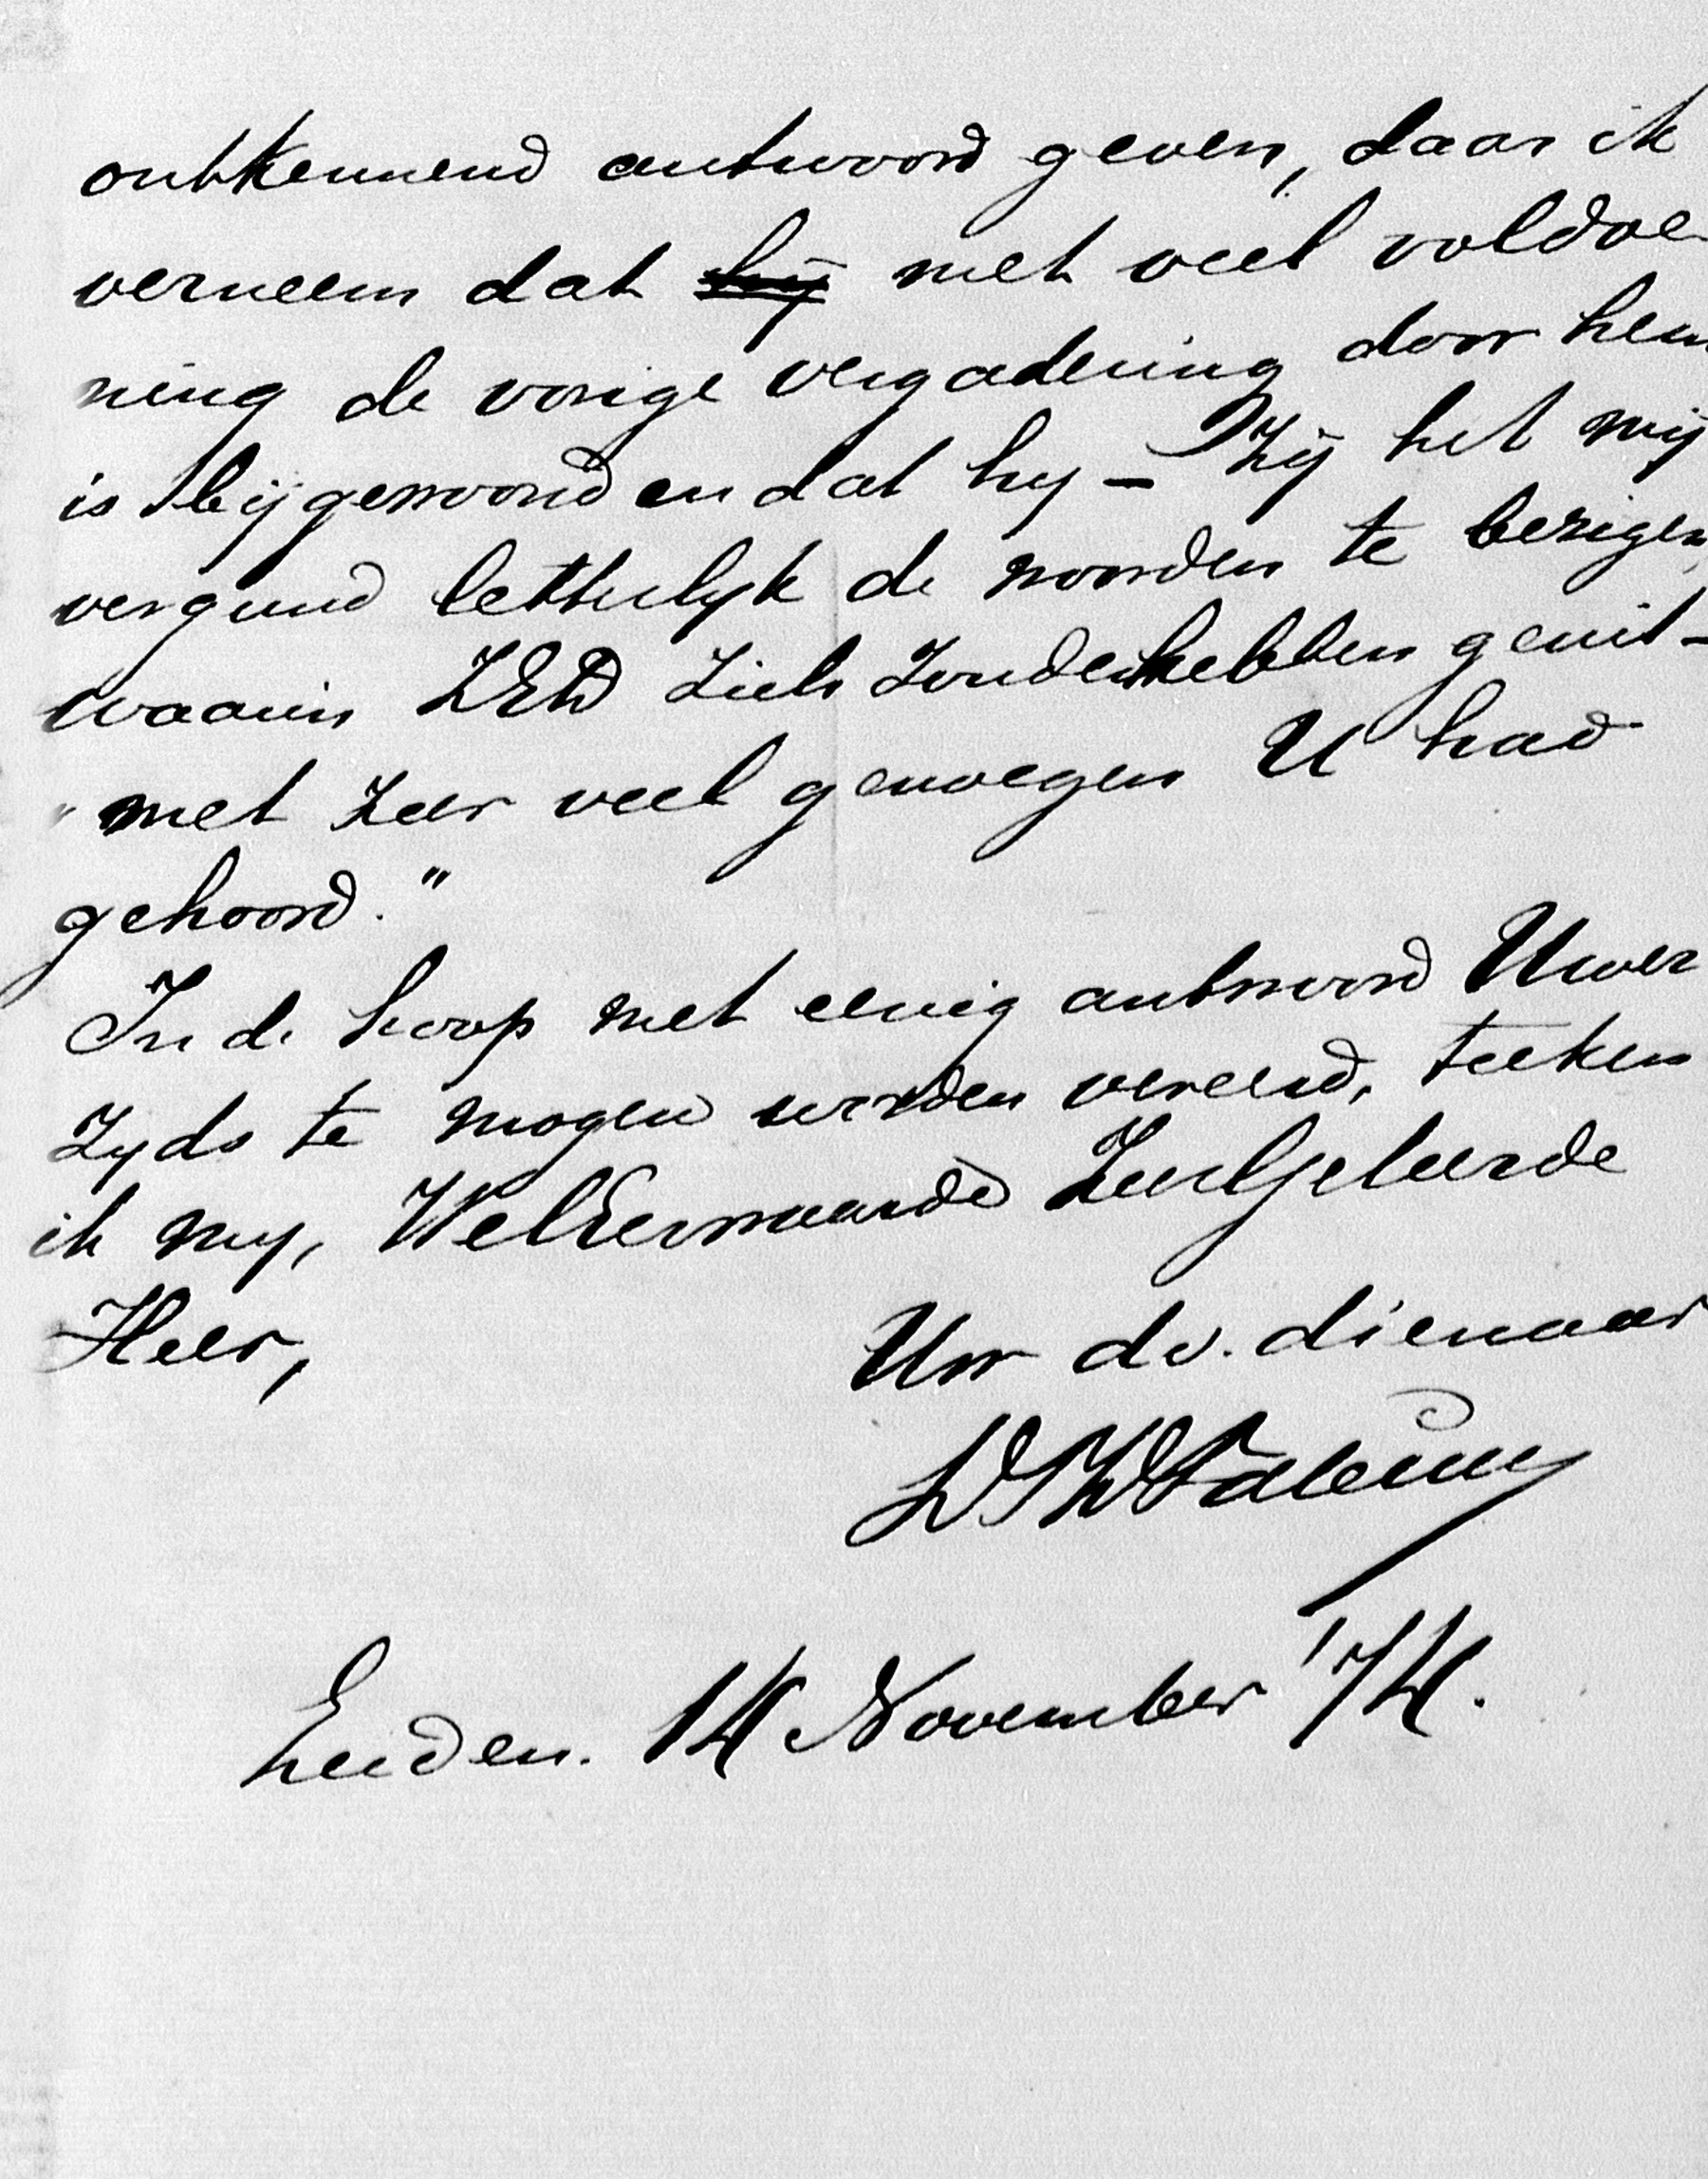 ontkennend antwoord geven, daar ik
verneem dat hij met veel voldoe-
ning de vorige vergadering door hem
is bijgewoond en dat hy – Zij het mij
vergund letterlyk de woorden te bezigen
waarin ZEW zich zouden hebben geuit –
"met zeer veel genoegen U had
gehoord."
In de hoop met eenig antwoord Uwer
zyds te mogen worden vereerd, teeken
ik my, WelEerwaarde ZeerGeleerde
Heer,
Uw dv. dienaar
Leiden. 14 November '74.